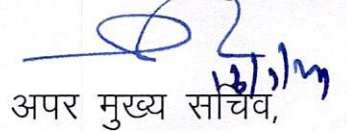 अपर मुख्य सचिव,